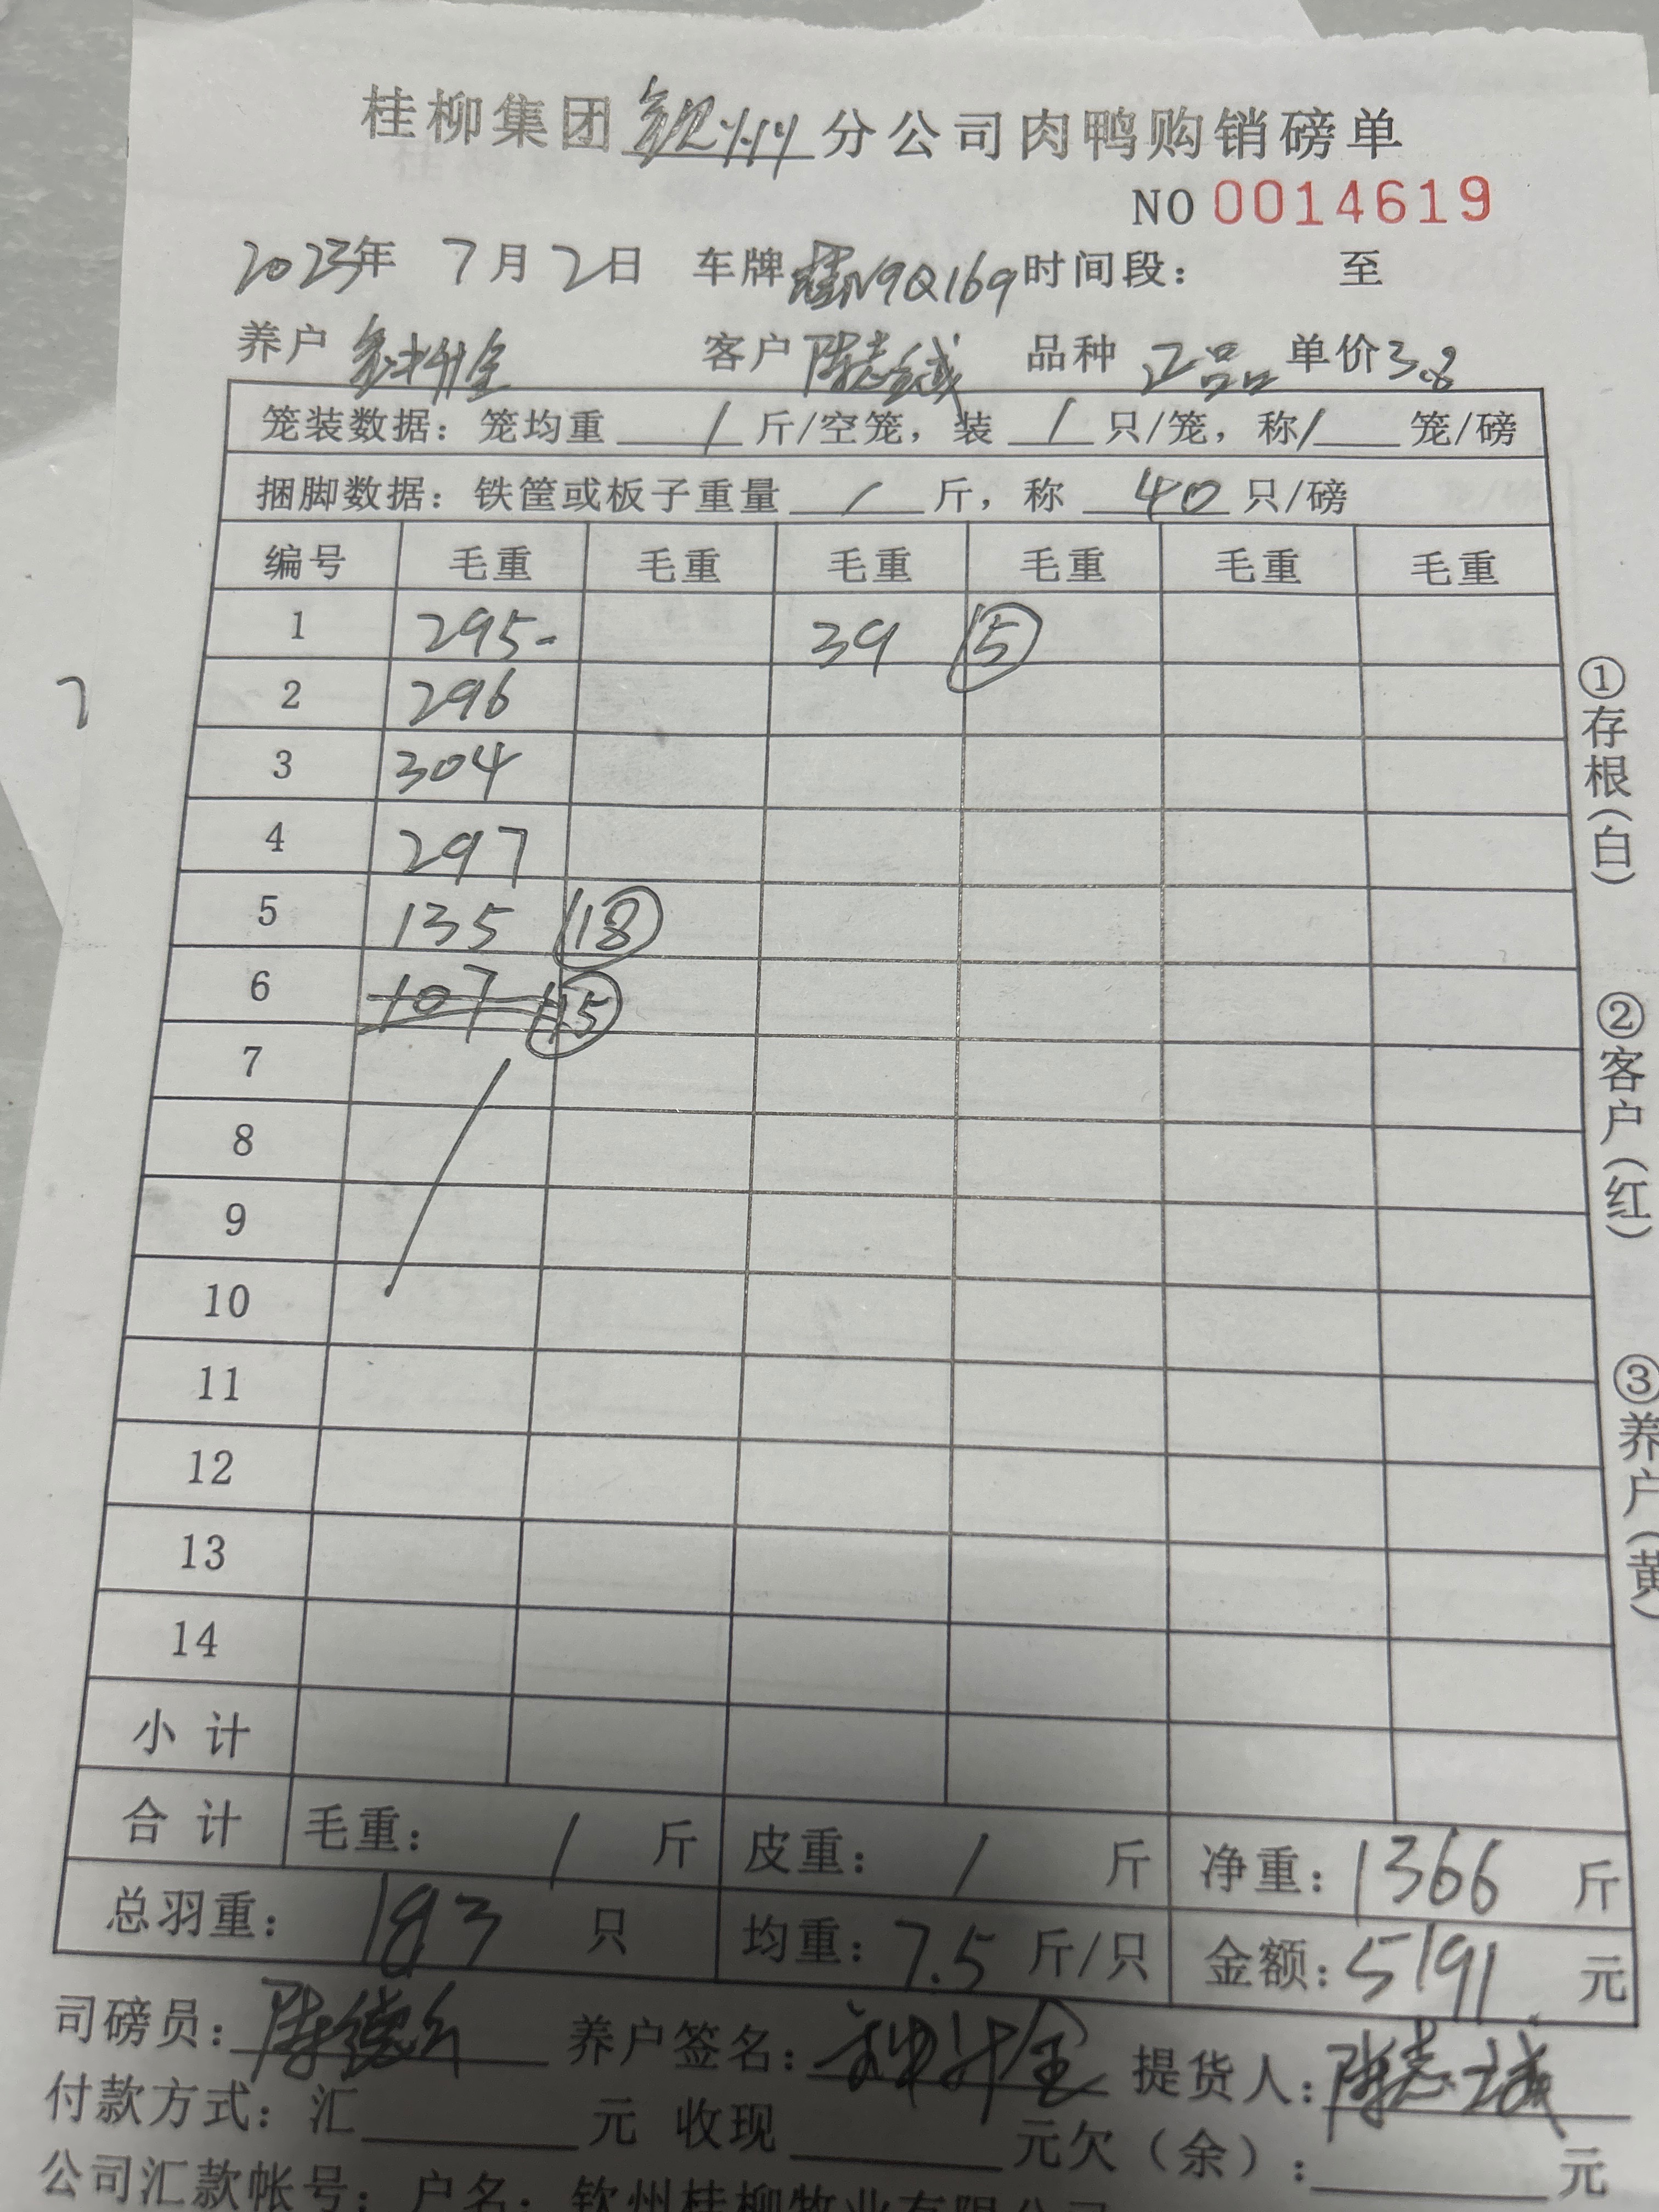 桂柳集团钦州分公司肉鸭购销磅单
NO 0014619
2023年 7月2日 车牌桂N9Q169时间段： 至
养户 客户陈志诚 品种 正品 单价3.8
笼装数据：笼均重 / 斤/空笼，装 / 只/笼，称/ 笼/磅
捆脚数据：铁筐或板子重量 / 斤，称 40 只/磅
编号 毛重 毛重 毛重 毛重 毛重 毛重
1 295- 39 ⑤
2 296
3 304
4 297
5 135 ⑱
6 107 ⑮
7
8
9
10
11
12
13
14
小计
合计 毛重： / 斤 皮重： / 斤 净重：1366 斤
总羽重： 183 只 均重：7.5 斤/只 金额：5191 元
司磅员： 养户签名： 提货人：陈志诚
付款方式：汇 元 收现 元欠（余）： 元
公司汇款帐号：户名：钦州桂柳牧业有限公司
①存根（白）
②客户（红）
③养户（黄）